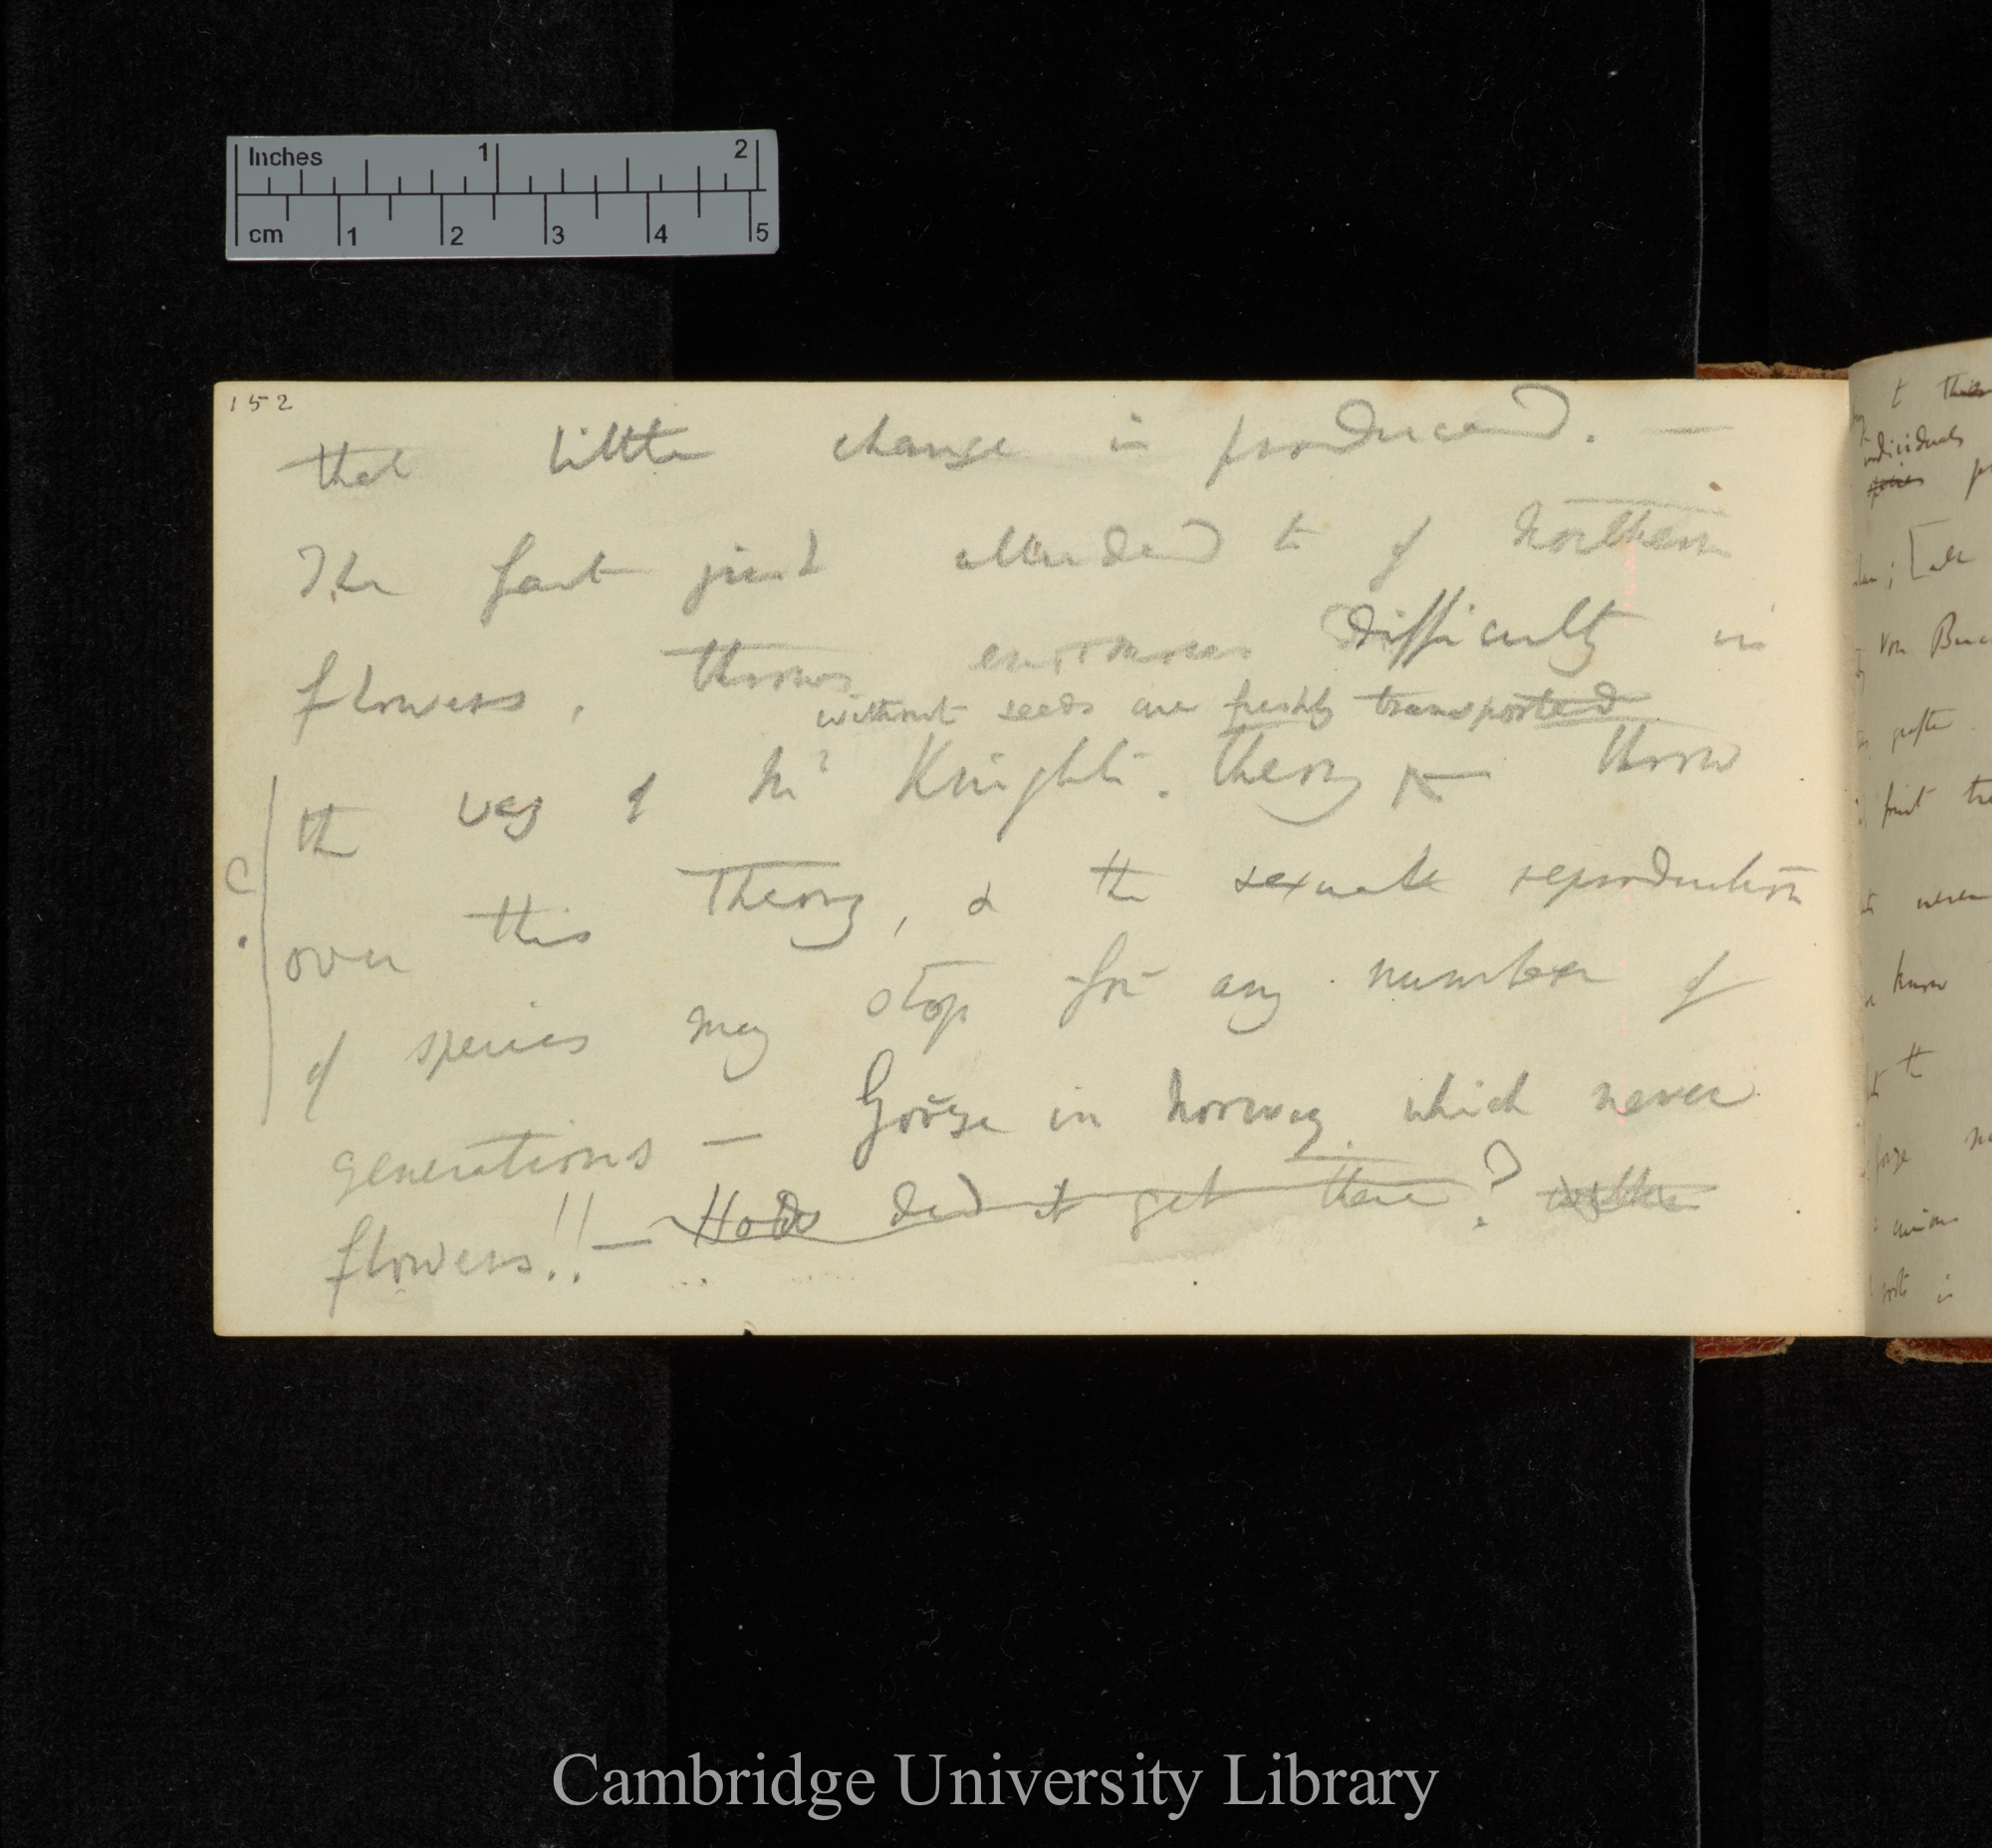 Inches 1 2
cm 1 2 3 4 5
152
that little change is produced. —
The fact just alluded to of Northern
flowers, throws enormous difficulty in
without seeds are freshly transported
the way of Mr Knight's. theory — throw
over this Theory, & the sexual reproduction
of species may stop for any number of
generations — Gorze in Norway which never
flowers!! — How did it get there?
C
to
individuals
species
; [all
Von Buc
grafte
fruit tre
never
know
the
in
Cambridge University Library